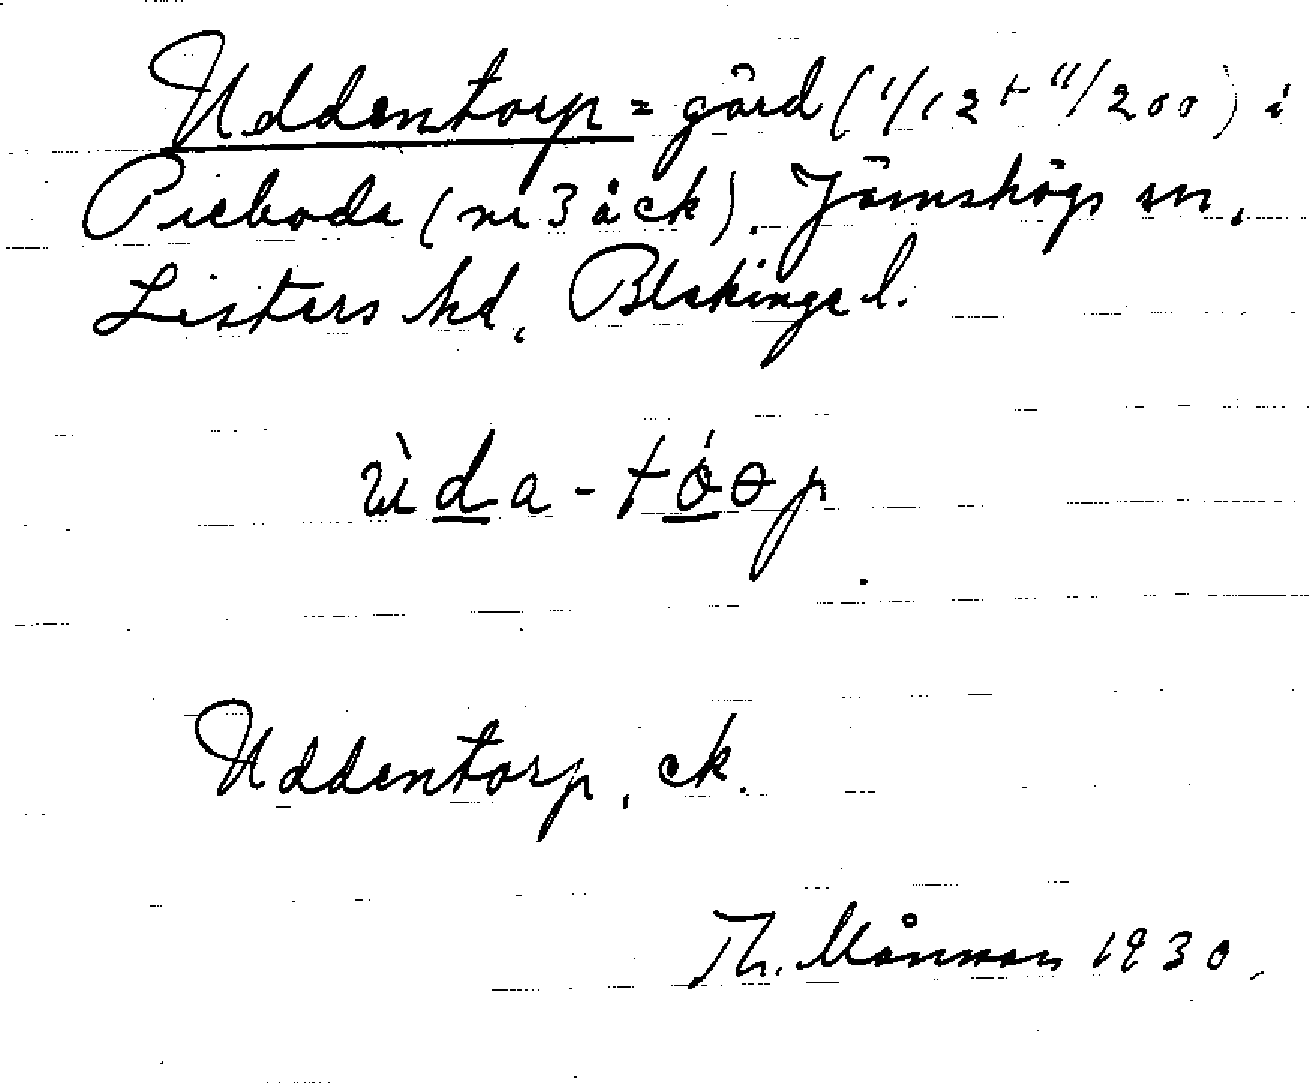 Uddentorp = gård (1/12 + 11/200) i
Pieboda (nr 3 å ck). Jämshögs sn,
Listers hd, Blekinge l.
ùda - tóop
Uddentorp, ck.
Th. Månsson 1930.